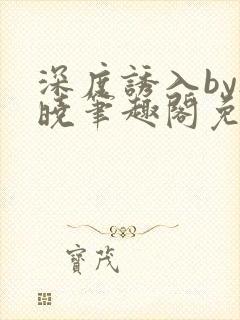 深度誘入by
曉筆趣閣免
寶茂